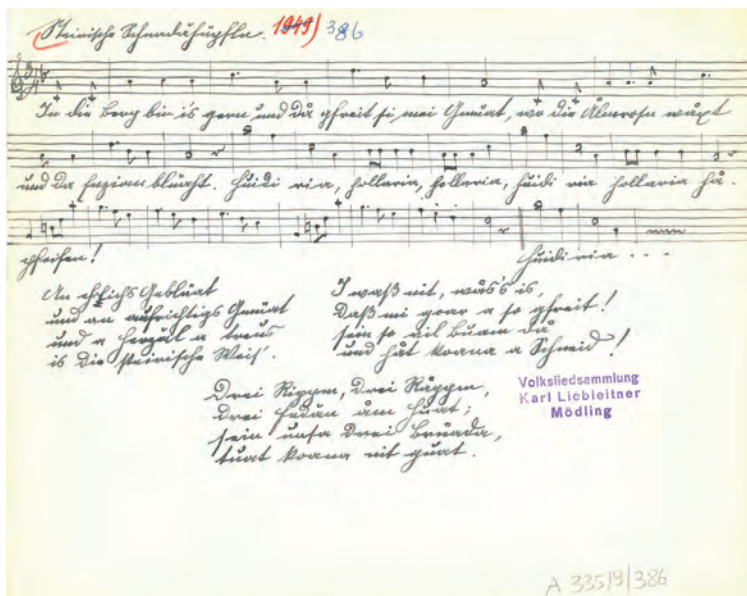 Steirische Schnadahüpfln. 1949) 386
In die Berg bin is gern und då gfreit si mei Gmüat, wo die Ålmrosn wåxt
und da Enzian blüaht. Huidi ria, hollaria, hollaria, huidi ria hollaria hå.
pfeifen! Huidi ria ...
An ehrlichs Geblüat
und an aufrichtigs Gmüat
und a Herzal a treus
is die steirische Weis'.
I waß nit, wås's is,
Daß mi goar a so gfreit!
sein so vil Buam då
und håt koana a Schneid!
Drei Rippm, drei Råppm,
drei Fedan åm Huat;
sein unsa drei Brüada,
tuat koana nit guat.
Volksliedsammlung
Karl Liebleitner
Mödling
A 335/9/386